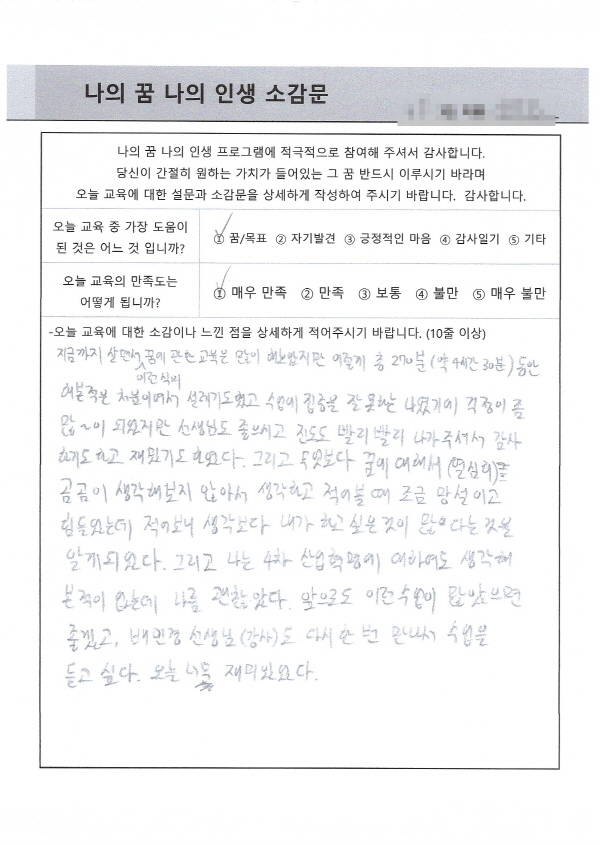 나의 꿈 나의 인생 소감문
나의 꿈 나의 인생 프로그램에 적극적으로 참여해 주셔서 감사합니다.
당신이 간절히 원하는 가치가 들어있는 그 꿈 반드시 이루시기 바라며
오늘 교육에 대한 설문과 소감문을 상세하게 작성하여 주시기 바랍니다. 감사합니다.
오늘 교육 중 가장 도움이
된 것은 어느 것 입니까?
① 꿈/목표 ② 자기발견 ③ 긍정적인 마음 ④ 감사일기 ⑤ 기타
오늘 교육의 만족도는
어떻게 됩니까?
① 매우 만족 ② 만족 ③ 보통 ④ 불만 ⑤ 매우 불만
-오늘 교육에 대한 소감이나 느낀 점을 상세하게 적어주시기 바랍니다. (10줄 이상)
지금까지 살면서 꿈에 관한 교육은 많이 해보았지만 이렇게 총 270분 (약 4시간 30분) 동안
이런식의
해본적은 처음이여서 설레기도했고 수업에 집중을 잘 못하는 나였기에 걱정이 좀
많~이 되었지만 선생님도 좋으시고 진도도 빨리빨리 나가주셔서 감사
하기도 하고 재밌기도 하였다. 그리고 무엇보다 꿈에 대해서 (열심히)
곰곰이 생각해보지 않아서 생각하고 적어볼 때 조금 망설이고
힘들었는데 적어보니 생각보다 내가 하고 싶은것이 많았다는 것을
알게되었다. 그리고 나는 4차 산업혁명에 대하여도 생각해
본적이 없는데 나름 괜찮았다. 앞으로도 이런수업이 많았으면
좋겠고, 배민경 선생님 (강사)도 다시 한 번 만나서 수업을
듣고 싶다. 오늘 너무 재미있었다.